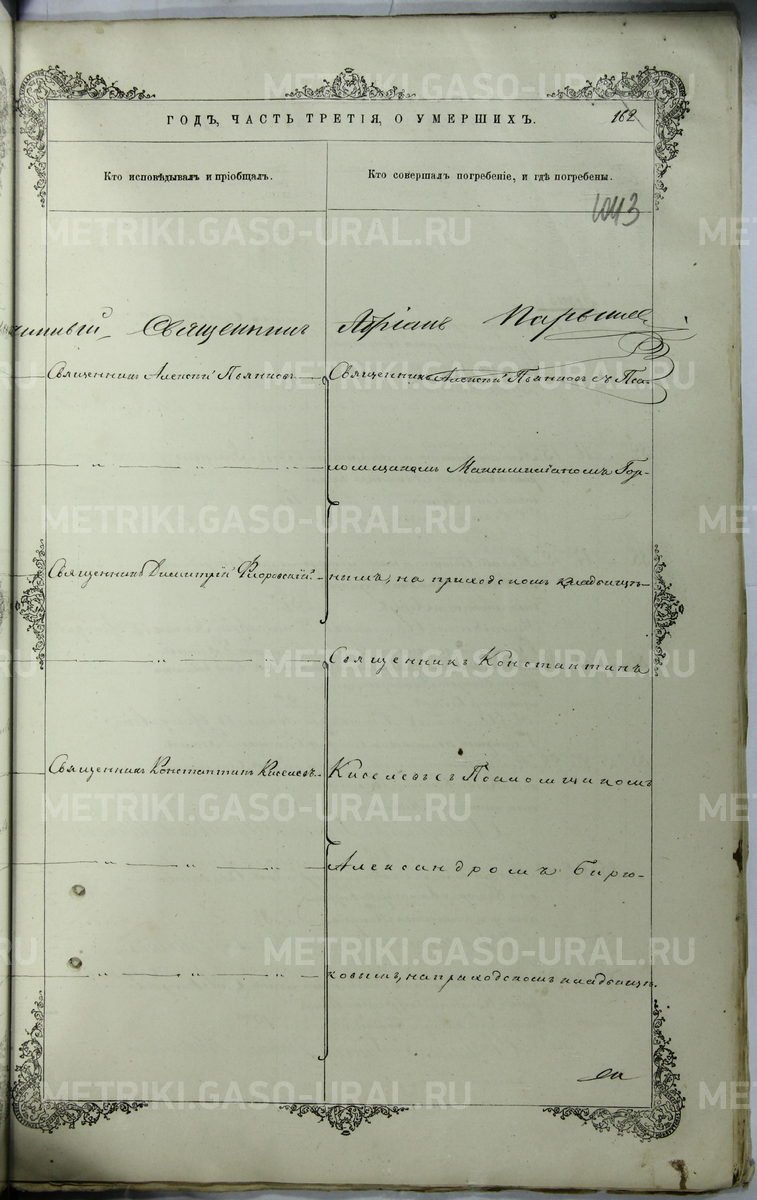 ГОДЪ, ЧАСТЬ ТРЕТІЯ, О УМЕРШИХЪ. 162
Кто исповѣдывалъ и пріобщалъ. Кто совершалъ погребеніе, и гдѣ погребены.
1043
Священник Адріанъ
Священникъ Алексѣй Пьянковъ Священникъ Алексѣй Пьянковъ съ Пса-
ломщикомъ Максимиліаномъ Гор-
Священникъ Димитрій Флоровскій. нымъ, на приходскомъ кладбищѣ
Священникъ Константинъ
Священникъ Константинъ Киселевъ. Киселевъ съ Псаломщикомъ
Александромъ Бирю-
ковымъ, на приходскомъ кладбищѣ.
METRIKI.GASO-URAL.RU